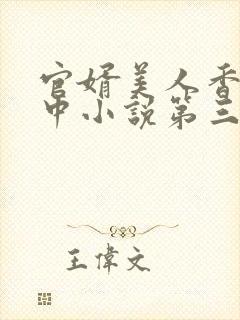 官婿美人香
中小説第三
王偉文